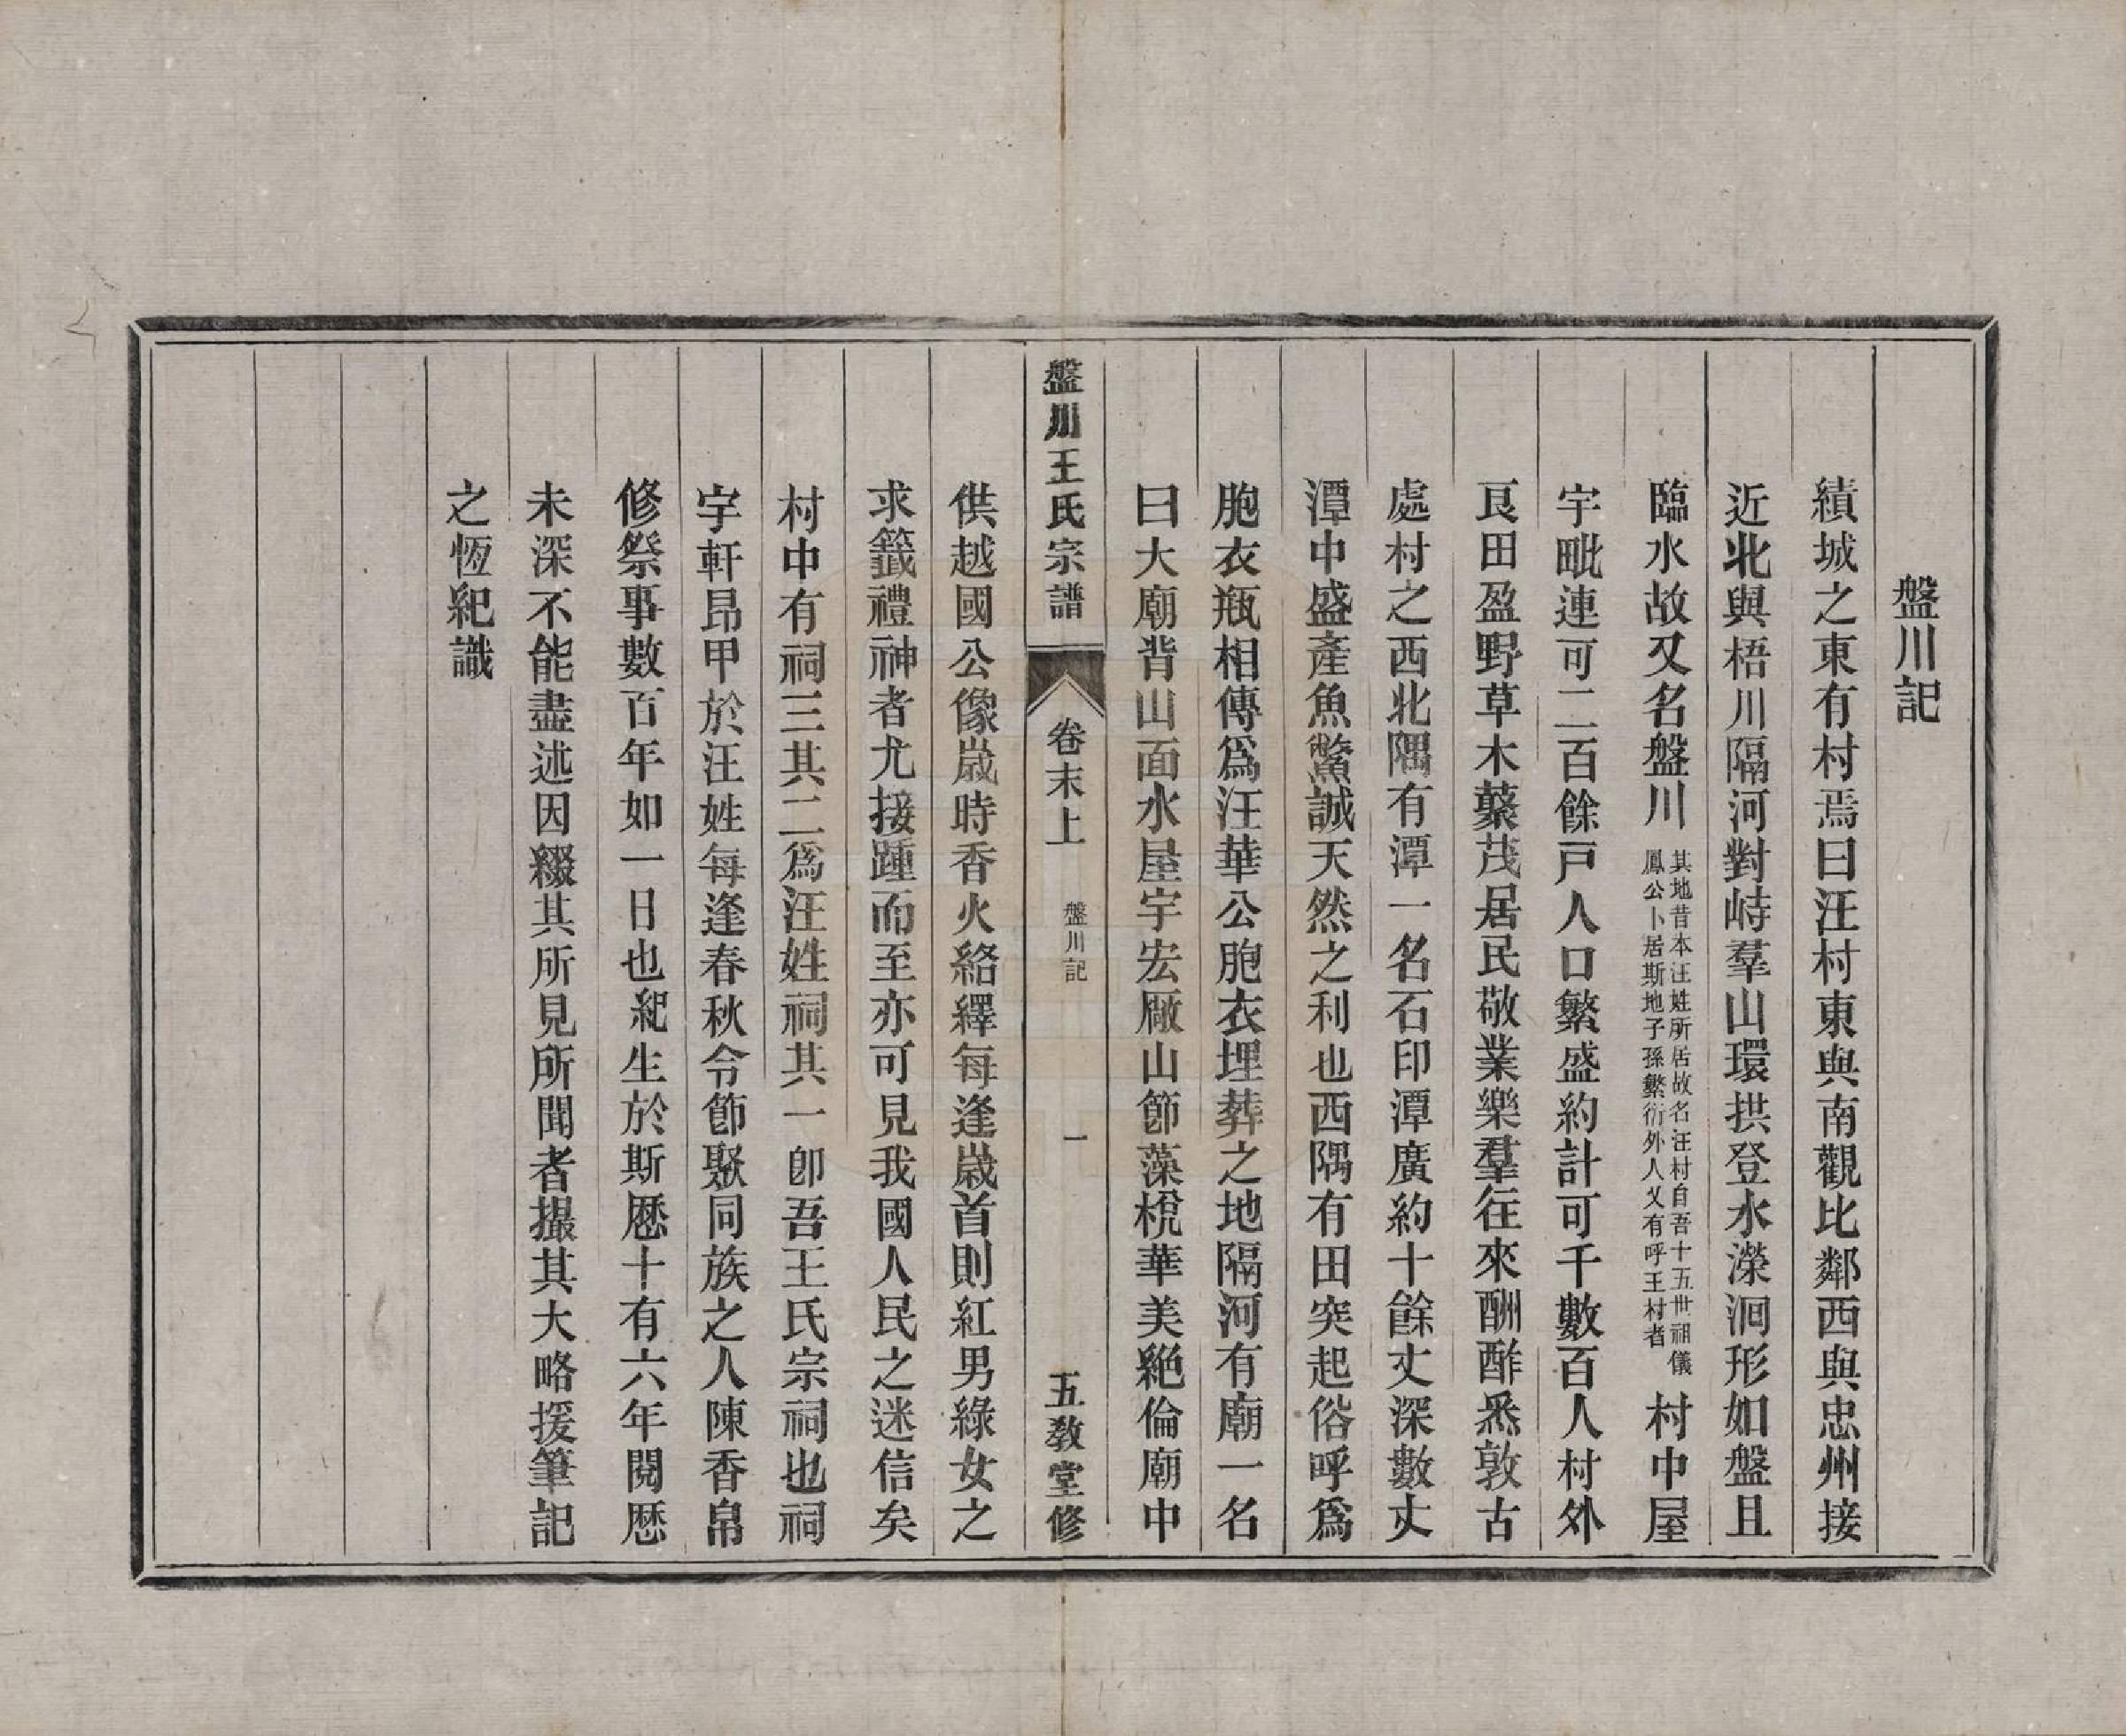 盤川記
績城之東有村焉曰汪村東與南觀比鄰西與忠州接
近北與梧川隔河對峙羣山環拱登水濚洄形如盤且
臨水故又名盤川
其地昔本汪姓所居故名汪村自吾十五世祖儀
鳳公卜居斯地子孫繁衍外人乂有呼王村者
村中屋
宇毗連可二百餘戸人口繁盛約計可千數百人村外
良田盈野草木蘩茂居民敬業樂羣往來酬酢悉敦古
處村之西北隅有潭一名石印潭廣約十餘丈深數丈
潭中盛產魚鱉誠天然之利也西隅有田突起俗呼爲
胞衣瓶相傳爲汪華公胞衣埋葬之地隔河有廟一名
曰大廟背山面水屋宇宏厰山節藻梲華美絕倫廟中
盤川王氏宗譜
卷末上
盤川記
一
五教堂修
供越國公像歲時香火絡繹每逢歲首則紅男綠女之
求籤禮神者尤接踵而至亦可見我國人民之迷信矣
村中有祠三其二爲汪姓祠其一卽吾王氏宗祠也祠
宇軒昂甲於汪姓每逢春秋令節聚同族之人陳香帛
修祭事數百年如一日也紀生於斯歷十有六年閱歷
未深不能盡述因綴其所見所聞者撮其大略援筆記
之恆紀識